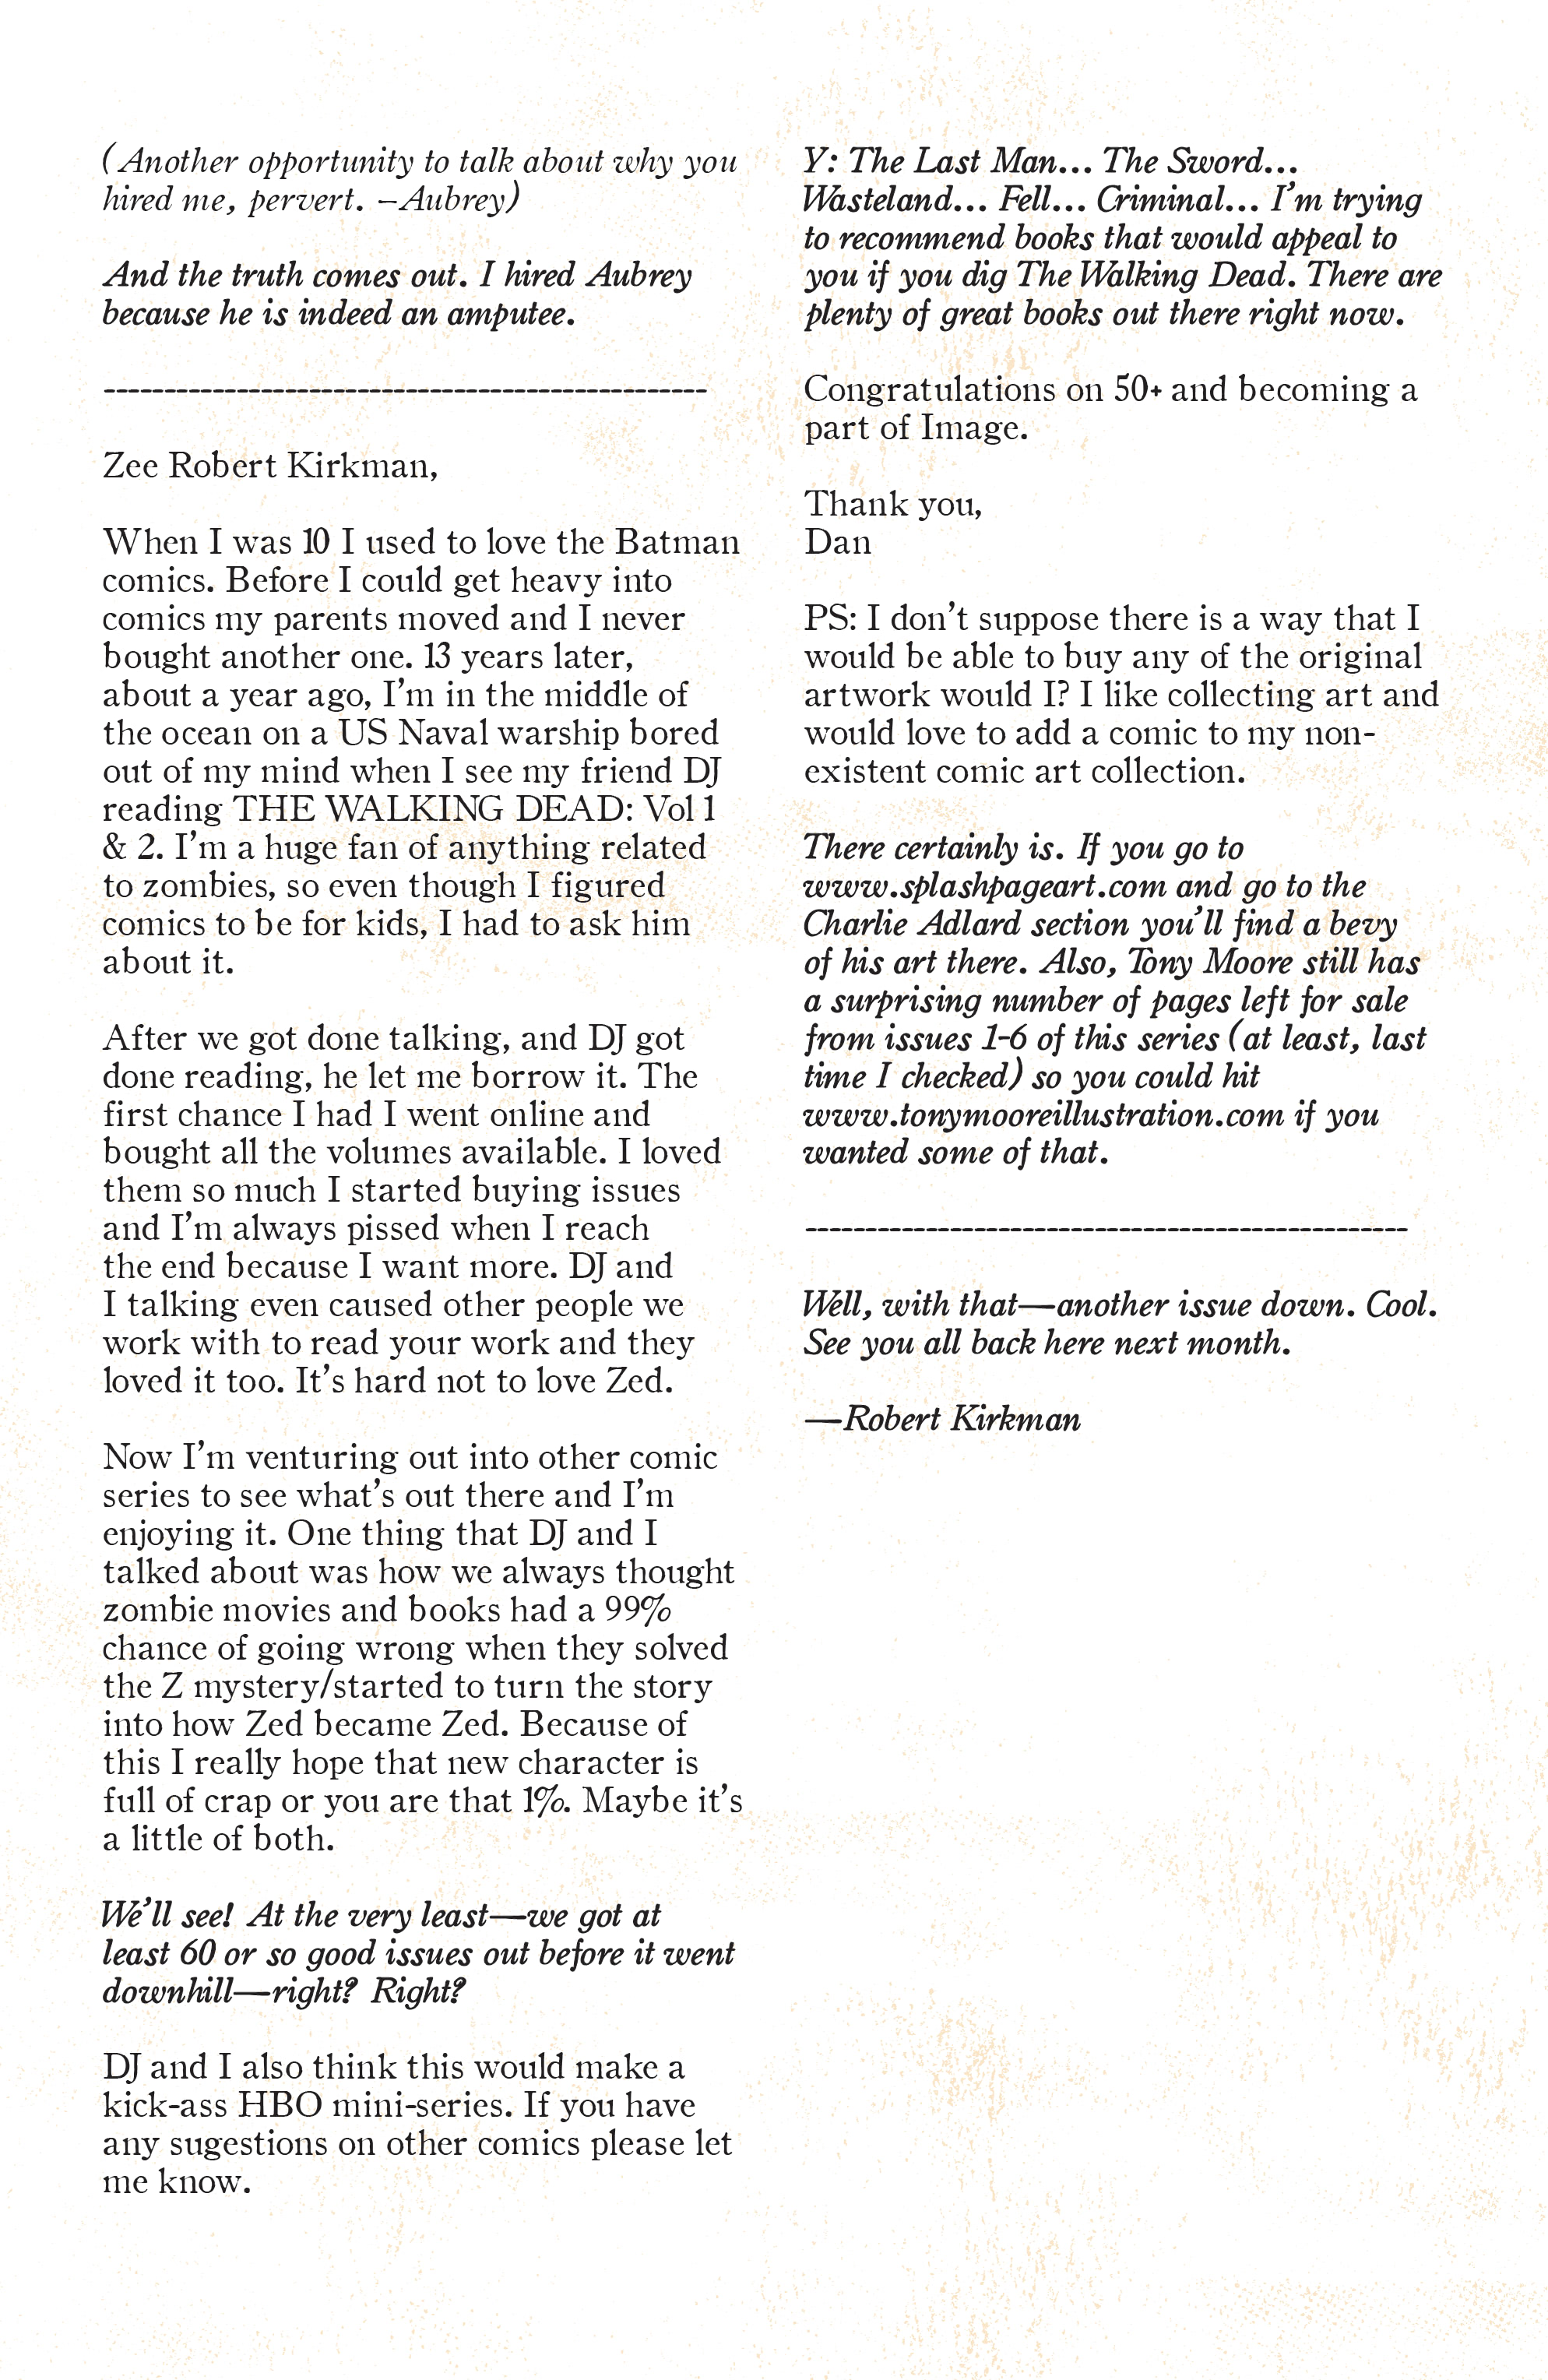 (Another opportunity to talk about why you
hired me, pervert. –Aubrey)
And the truth comes out. I hired Aubrey
because he is indeed an amputee.
--------------------------------------------------
Zee Robert Kirkman,
When I was 10 I used to love the Batman
comics. Before I could get heavy into
comics my parents moved and I never
bought another one. 13 years later,
about a year ago, I'm in the middle of
the ocean on a US Naval warship bored
out of my mind when I see my friend DJ
reading THE WALKING DEAD: Vol 1
& 2. I'm a huge fan of anything related
to zombies, so even though I figured
comics to be for kids, I had to ask him
about it.
After we got done talking, and DJ got
done reading, he let me borrow it. The
first chance I had I went online and
bought all the volumes available. I loved
them so much I started buying issues
and I'm always pissed when I reach
the end because I want more. DJ and
I talking even caused other people we
work with to read your work and they
loved it too. It's hard not to love Zed.
Now I'm venturing out into other comic
series to see what's out there and I'm
enjoying it. One thing that DJ and I
talked about was how we always thought
zombie movies and books had a 99%
chance of going wrong when they solved
the Z mystery/started to turn the story
into how Zed became Zed. Because of
this I really hope that new character is
full of crap or you are that 1%. Maybe it's
a little of both.
We'll see! At the very least—we got at
least 60 or so good issues out before it went
downhill—right? Right?
DJ and I also think this would make a
kick-ass HBO mini-series. If you have
any sugestions on other comics please let
me know.
Y: The Last Man... The Sword...
Wasteland... Fell... Criminal... I'm trying
to recommend books that would appeal to
you if you dig The Walking Dead. There are
plenty of great books out there right now.
Congratulations on 50+ and becoming a
part of Image.
Thank you,
Dan
PS: I don't suppose there is a way that I
would be able to buy any of the original
artwork would I? I like collecting art and
would love to add a comic to my non-
existent comic art collection.
There certainly is. If you go to
www.splashpageart.com and go to the
Charlie Adlard section you'll find a bevy
of his art there. Also, Tony Moore still has
a surprising number of pages left for sale
from issues 1-6 of this series (at least, last
time I checked) so you could hit
www.tonymooreillustration.com if you
wanted some of that.
--------------------------------------------------
Well, with that—another issue down. Cool.
See you all back here next month.
—Robert Kirkman